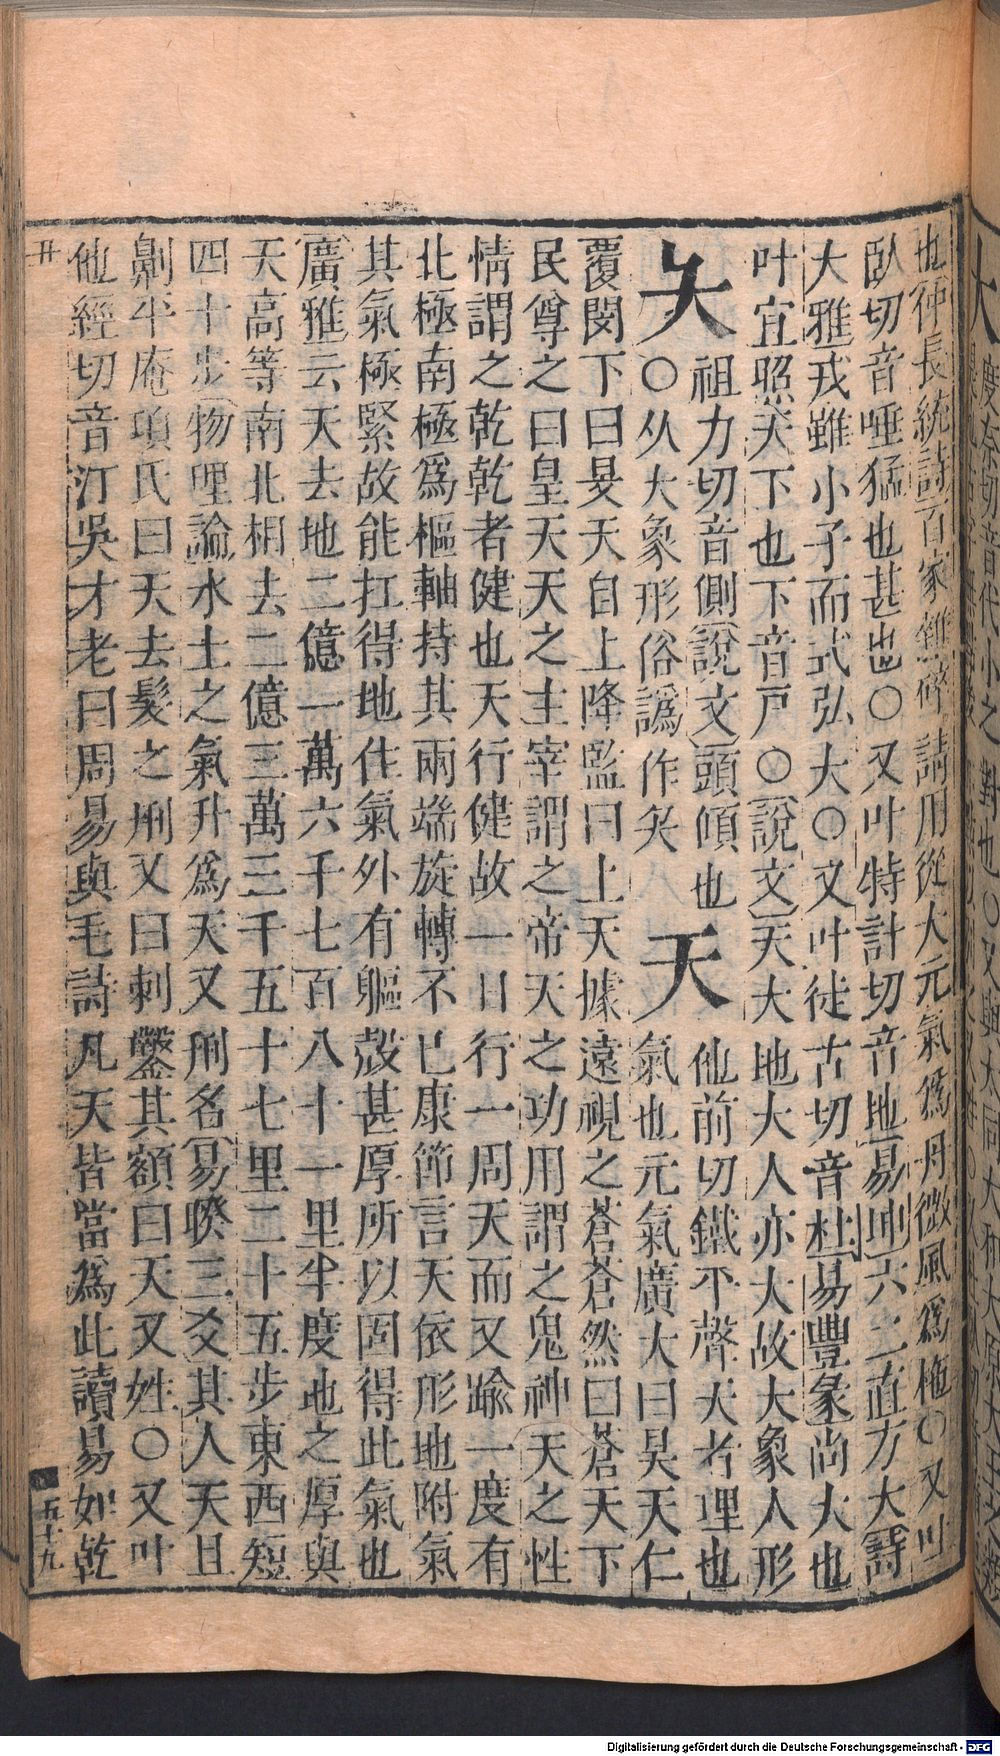 也仲長統詩百家雜碎請用從大元氣爲舟微風爲柂〇又叶
臥切音唾猛也甚也〇又叶特計切音地易坤六二直方大詩
大雅戎雖小子而式弘大〇又叶徒古切音杜易豐彖尚大也
叶宜照天下也下音戸〇說文天大地大人亦大故大象人形
夨 祖力切音側說文頭傾也 天 他前切鐵平聲天者理也
〇从大象形俗譌作矢 氣也元氣廣大曰昊天仁
覆閔下曰旻天自上降監曰上天據遠視之蒼蒼然曰蒼天下
民尊之曰皇天天之主宰謂之帝天之功用謂之鬼神天之性
情謂之乾乾者健也天行健故一日行一周天而又踰一度有
北極南極爲樞軸持其兩端旋轉不已康節言天依形地附氣
其氣極緊故能扛得地住氣外有軀殼甚厚所以固得此氣也
廣雅云天去地二億一萬六千七百八十一里半度地之厚與
天高等南北相去二億三萬三千五十七里二十五步東西短
四十步物理論水土之氣升爲天又刑名易睽三爻其人天且
劓平庵項氏曰天去髮之刑又曰刺鑿其額曰天又姓〇又叶
他經切音汀吳才老曰周易與毛詩凡天皆當爲此讀易如乾
五十九
Digitalisierung gefördert durch die Deutsche Forschungsgemeinschaft - DFG